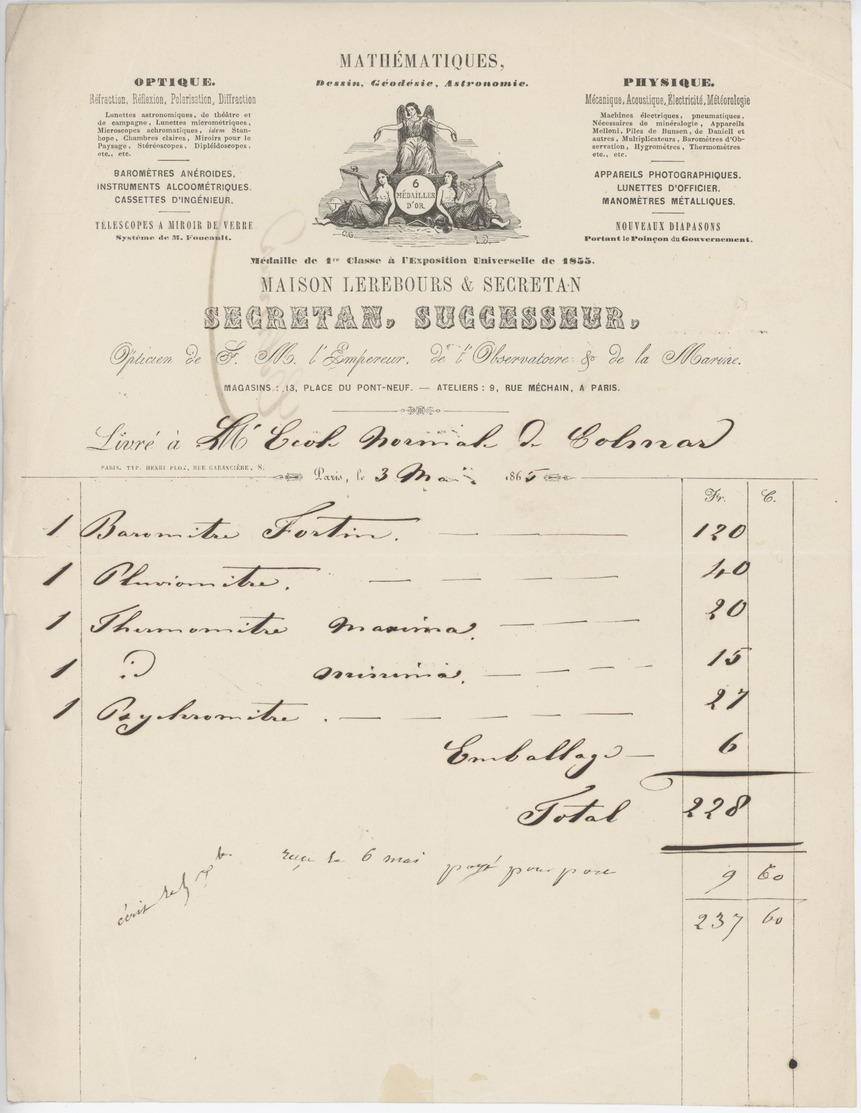 MATHÉMATIQUES,
Dessin, Géodésie, Astronomie.
OPTIQUE.
Réfraction, Réflexion, Polarisation, Diffraction
Lunettes astronomiques, de théâtre et
de campagne, Lunettes micrométriques,
Microscopes achromatiques, idem Stan-
hope, Chambres claires, Miroirs pour le
Paysage, Stéréoscopes, Dipléidoscopes,
etc., etc.
BAROMÈTRES ANÉROIDES.
INSTRUMENTS ALCOOMÉTRIQUES.
CASSETTES D'INGÉNIEUR.
TÉLESCOPES A MIROIR DE VERRE
Système de M. Foucault.
6
MÉDAILLES
D'OR
PHYSIQUE.
Mécanique, Acoustique, Électricité, Météorologie
Machines électriques, pneumatiques,
Nécessaires de minéralogie, Appareils
Melloni, Piles de Bunsen, de Daniell et
autres, Multiplicateurs, Baromètres d'Ob-
servation, Hygromètres, Thermomètres
etc., etc.
APPAREILS PHOTOGRAPHIQUES.
LUNETTES D'OFFICIER.
MANOMÈTRES MÉTALLIQUES.
NOUVEAUX DIAPASONS
Portant le Poinçon du Gouvernement.
Médaille de 1re Classe à l'Exposition Universelle de 1855.
MAISON LEREBOURS & SECRETAN
SECRETAN, SUCCESSEUR,
Opticien de S. M. l'Empereur, de l'Observatoire & de la Marine.
MAGASINS : 13, PLACE DU PONT-NEUF. — ATELIERS : 9, RUE MÉCHAIN, A PARIS.
Livré à Mr Ecole Normale de Colmar
PARIS. TYP. HENRI PLON, RUE GARANCIÈRE, 8.
Paris, le 3 Mai 1865
Fr. C.
1 Baromètre Fortin. 120
1 Pluviomètre. 40
1 Thermomètre maxima. 20
1 id minima. 15
1 Psychromètre. 27
Emballage 6
Total 228
reçu le 6 mai payé pour port 9 60
écrit le
237 60